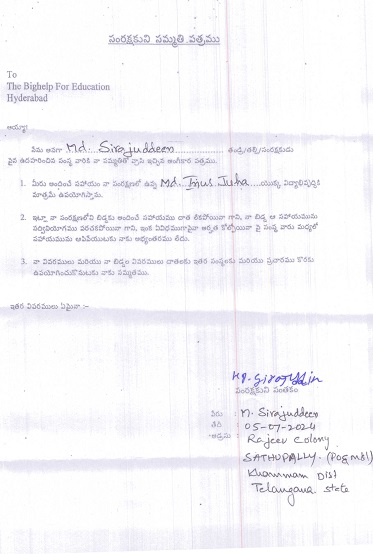 సంరక్షకుని సమ్మతి పత్రము
To
The Bighelp For Education
Hyderabad
అయ్యా!
నేను అనగా Md. Sirajuddeen తండ్రి/తల్లి/సంరక్షకుడు
పైన ఉదహరించిన సంస్థ వారికి నా సమ్మతితో వ్రాసి ఇచ్చిన అంగీకార పత్రము.
1. మీరు అందించే సహాయం నా సంరక్షణలో ఉన్న Md. Juha యొక్క విద్యాభివృద్ధికి
మాత్రమే ఉపయోగిస్తాను.
2. ఇట్లా నా సంరక్షణలోని బిడ్డకు అందించే సహాయము దాత లేకపోయినా గాని, నా బిడ్డ ఆ సహాయమును
సద్వినియోగము పరచకపోయినా గాని, ఇంక ఏవిధముగానైనా అర్హత కోల్పోయినా పై సంస్థ వారు మధ్యలో
సహాయమును ఆపివేయుటకు నాకు అభ్యంతరము లేదు.
3. నా వివరములు మరియు నా బిడ్డల వివరములు దాతలకు ఇతర సంస్థలకు మరియు ప్రచారము కొరకు
ఉపయోగించుకొనుటకు నాకు సమ్మతము.
ఇతర వివరములు ఏమైనా :-
సంరక్షకుని సంతకం
పేరు : M. Sirajuddeen
తేది : 05-07-2024
అడ్రసు : Rajeev Colony
SATHUPALLY. (Po & Mdl)
Khammam Dist
Telangana State